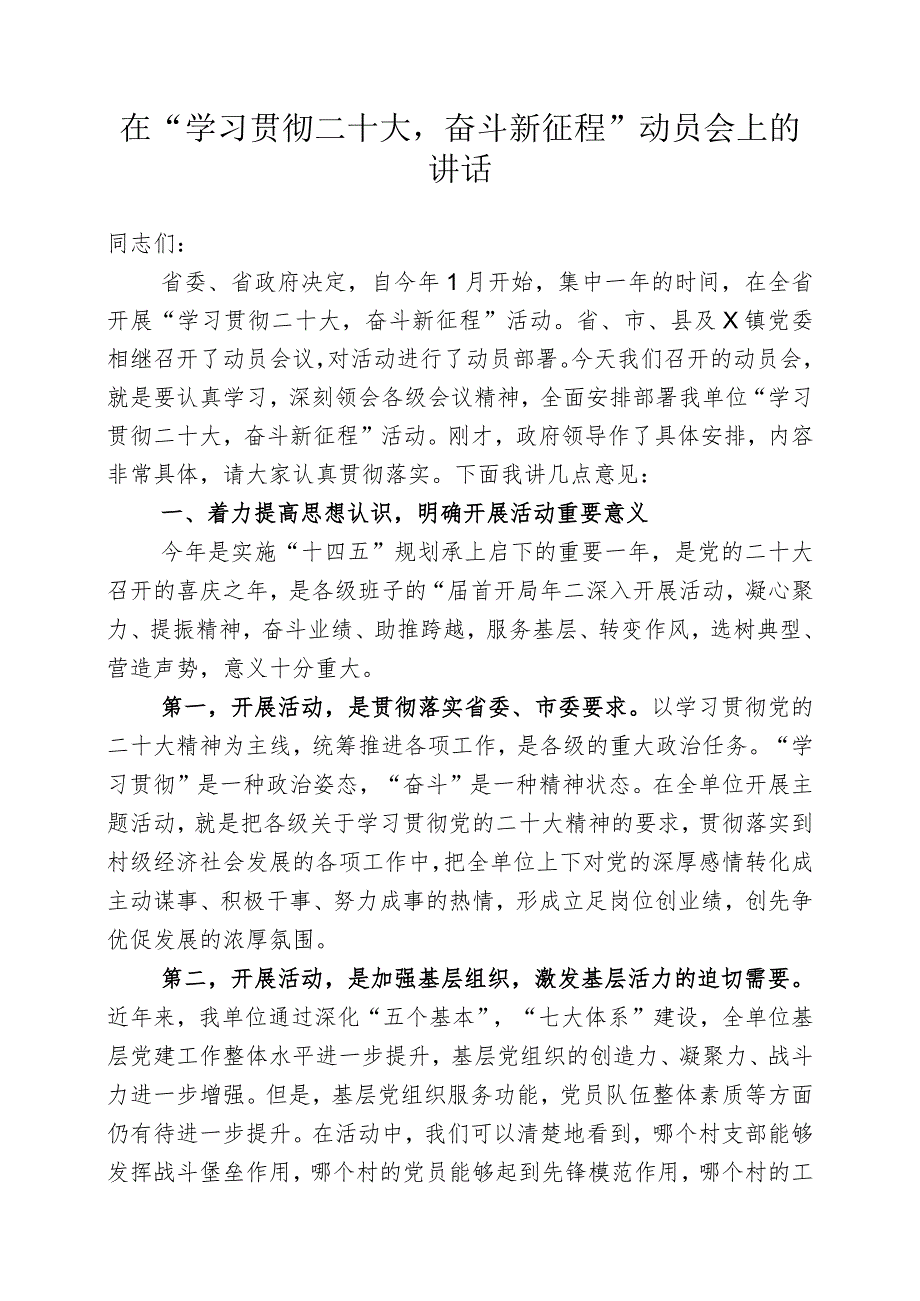 在“学习贯彻二十大，奋斗新征程”动员会上的
讲话
同志们：
省委、省政府决定，自今年1月开始，集中一年的时间，在全省
开展“学习贯彻二十大，奋斗新征程”活动。省、市、县及X镇党委
相继召开了动员会议，对活动进行了动员部署。今天我们召开的动员会，
就是要认真学习，深刻领会各级会议精神，全面安排部署我单位“学习
贯彻二十大，奋斗新征程”活动。刚才，政府领导作了具体安排，内容
非常具体，请大家认真贯彻落实。下面我讲几点意见：
一、着力提高思想认识，明确开展活动重要意义
今年是实施“十四五”规划承上启下的重要一年，是党的二十大
召开的喜庆之年，是各级班子的“届首开局年二深入开展活动，凝心聚
力、提振精神，奋斗业绩、助推跨越，服务基层、转变作风，选树典型、
营造声势，意义十分重大。
第一，开展活动，是贯彻落实省委、市委要求。以学习贯彻党的
二十大精神为主线，统筹推进各项工作，是各级的重大政治任务。“学
习贯彻”是一种政治姿态，“奋斗”是一种精神状态。在全单位开展主
题活动，就是把各级关于学习贯彻党的二十大精神的要求，贯彻落实到
村级经济社会发展的各项工作中，把全单位上下对党的深厚感情转化成
主动谋事、积极干事、努力成事的热情，形成立足岗位创业绩，创先争
优促发展的浓厚氛围。
第二，开展活动，是加强基层组织，激发基层活力的迫切需要。
近年来，我单位通过深化“五个基本”，“七大体系”建设，全单位基
层党建工作整体水平进一步提升，基层党组织的创造力、凝聚力、战斗
力进一步增强。但是，基层党组织服务功能，党员队伍整体素质等方面
仍有待进一步提升。在活动中，我们可以清楚地看到，哪个村支部能够
发挥战斗堡垒作用，哪个村的党员能够起到先锋模范作用，哪个村的工